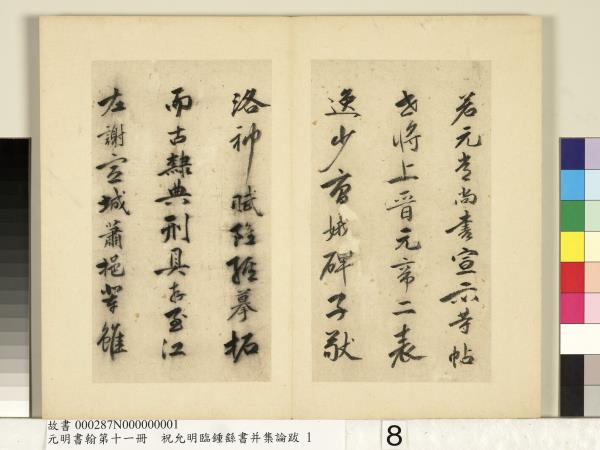 若元常尚書宣示等帖
世將上晉元帝二表
逸少曹娥碑子敬
洛神賦雖經摹拓
而古隸典刑具存至江
左謝宣城蕭挹輩雖
故書 000287N000000001
元明書翰第十一冊　祝允明臨鍾繇書并集論跋 1
8